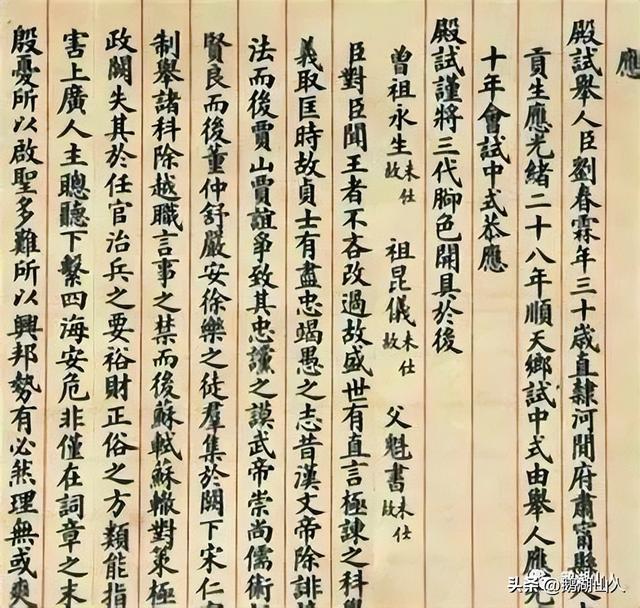 應
殿試舉人臣劉春霖年三十歲直隸河間府肅甯縣
貢生應光緒二十八年順天鄉試中式由舉人應光
十年會試中式恭應
殿試謹將三代腳色開具於後
曾祖永生未仕故 祖昆儀未仕故 父魁書未仕故
臣對臣聞王者不吝改過故盛世有直言極諫之科
義取匡時故貞士有盡忠竭愚之志昔漢文帝除誹
法而後賈山賈誼爭致其忠讜之謨武帝崇尚儒術
賢良而後董仲舒嚴安徐樂之徒羣集於闕下宋仁
制舉諸科除越職言事之禁而後蘇軾蘇轍對策極
政闕失其於任官治兵之要裕財正俗之方類能指
害上廣人主聰聽下繫四海安危非僅在詞章之末
殷憂所以啟聖多難所以興邦勢有必然理無或爽
头条@鹅湖山人